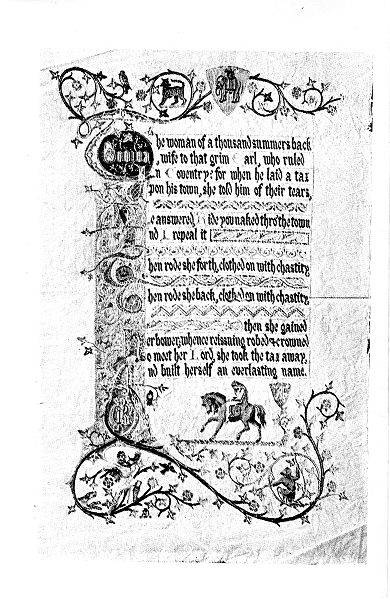 he woman of a thousand summers back
, wife to that grim arl, who ruled
n oventry: for when he laid a tax
pon his town, she told him of their tears,
e answered, ide you naked thro' the town
nd I repeal it
hen rode she forth, clothed on with chastity
hen rode she back, clothed on with chastity
then she gained
er bower; whence reissuing robed & crowned
o meet her Lord, she took the tax away,
nd built herself an everlasting name.